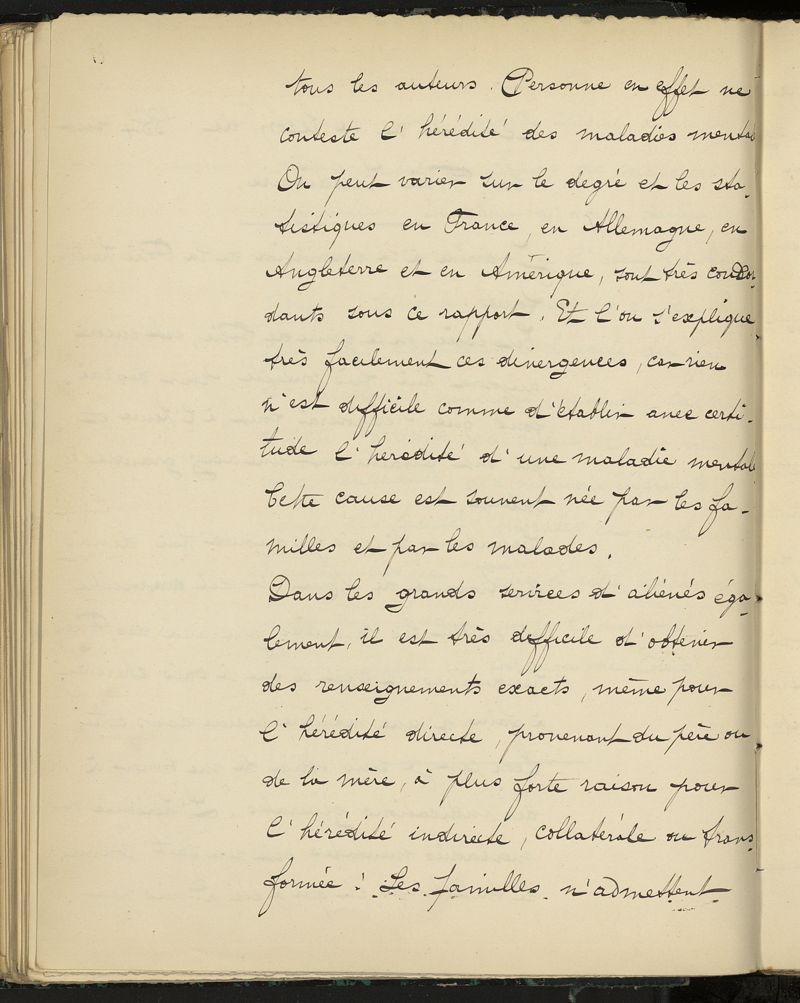 tous les auteurs. Personne en effet ne
conteste l'hérédité des maladies mentales
On peut varier sur le degré et les sta-
tistiques en France, en Allemagne, en
Angleterre et en Amérique, sont très concor-
dants sous ce rapport. Et l'on s'explique
très facilement ces divergences, car rien
n'est difficile comme d'établir avec certi-
tude l'hérédité d'une maladie mentale
Cette cause est souvent niée par les fa-
milles et par les malades.
Dans les grands services d'aliénés éga-
lement, il est très difficile d'obtenir
des renseignements exacts, même pour
l'hérédité directe, provenant du père ou
de la mère, à plus forte raison pour
l'hérédité indirecte, collatérale ou trans
formée! Les familles n'admettent